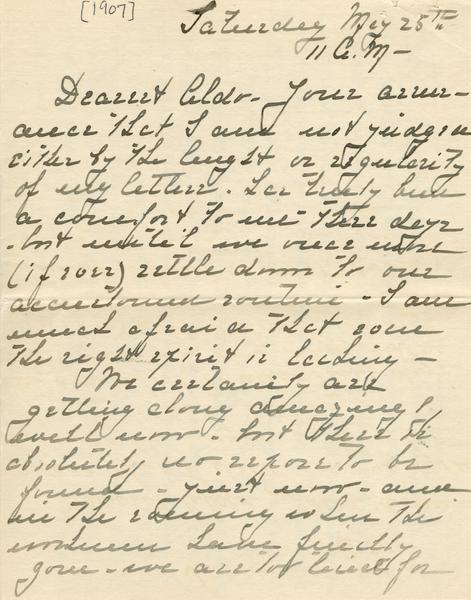 [1907]
Saturday May 25th
11 A.M -
Dearest Aldo - Your assur-
ances that I am not judged
either by the lenght or regularity
of my letters - has truly been
a comfort to me these days
- but until we once more
(if ever) settle down to our
accustomed routine - I am
much afraid that even
the right spirit is lacking -
We certainly are
getting along amazingly
well now - but there is
absolutely no repose to be
found - just now - and
in the evening when the
workmen have finally
gone - we are too tired for